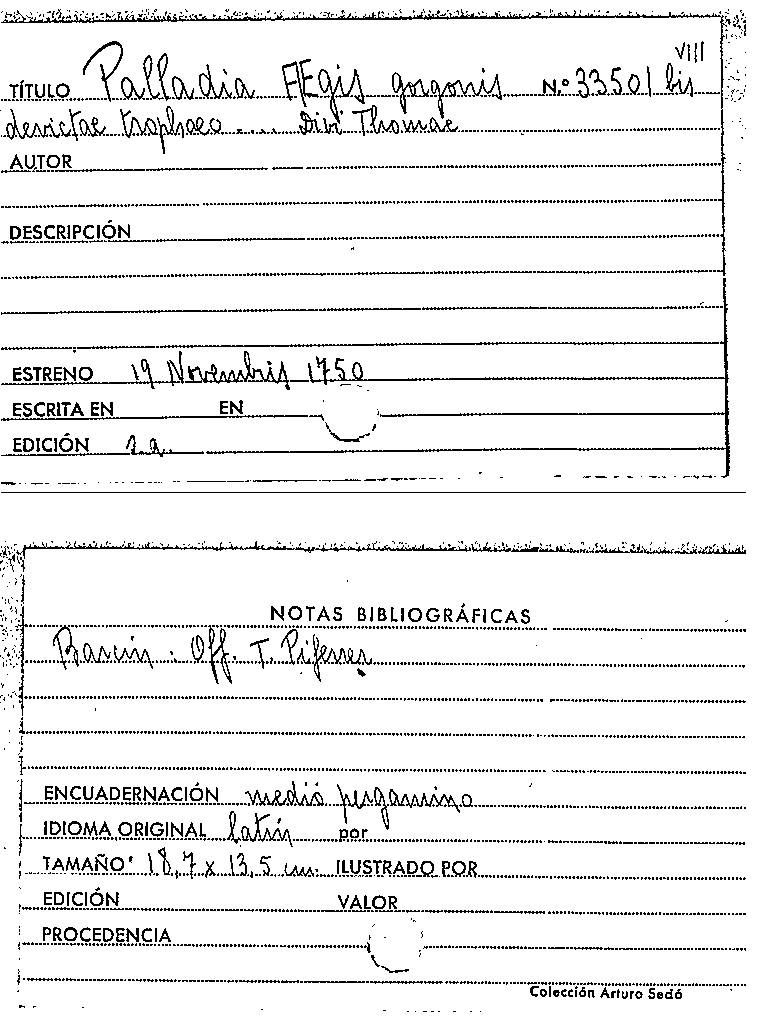 VIII
TÍTULO Palladia Ægis gorgonis N.º 33501 bis
devictae trophaeo .... Divi Thomae
AUTOR
DESCRIPCIÓN
ESTRENO 19 Novembris 1750
ESCRITA EN EN
EDICIÓN s.a.
NOTAS BIBLIOGRÁFICAS
Barcin : Off. T. Piferrer
ENCUADERNACIÓN medio pergamino
IDIOMA ORIGINAL latín por
TAMAÑO 18,7 x 13,5 cm. ILUSTRADO POR
EDICIÓN VALOR
PROCEDENCIA
Colección Arturo Sedó